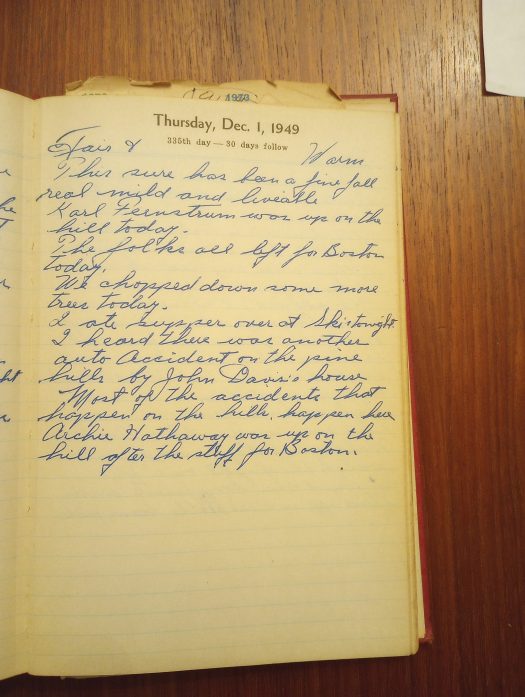 1973
Thursday, Dec. 1, 1949
335th day — 30 days follow
Fair & Warm
This sure has been a fine fall
real mild and liveable
Karl Fernstrum was up on the
hill today.
The folks all left for Boston
today.
We chopped down some more
trees today.
I ate supper over at Ski's tonight.
I heard there was another
auto Accident on the pine
hills by John Davis's house
Most of the accidents that
happen on the hills, happen here
Archie Hathaway was up on the
hill after the stuff for Boston.